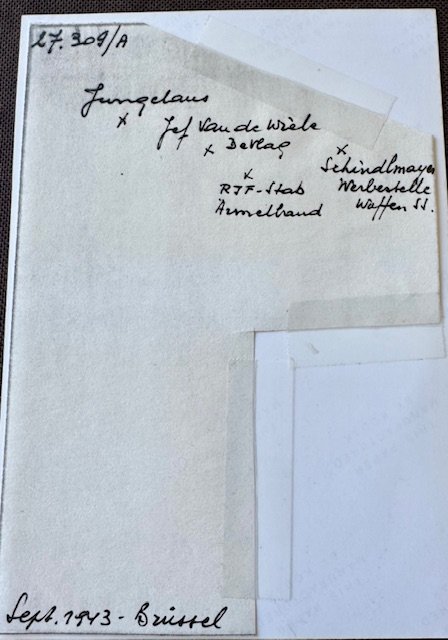 27.309/A
Jungclaus
x
Jef Van de Wiele
x DeVlag
x
Schindlmayer
Werbestelle
Waffen SS.
x
RJF-Stab
Ärmelband
Sept. 1943 - Brüssel